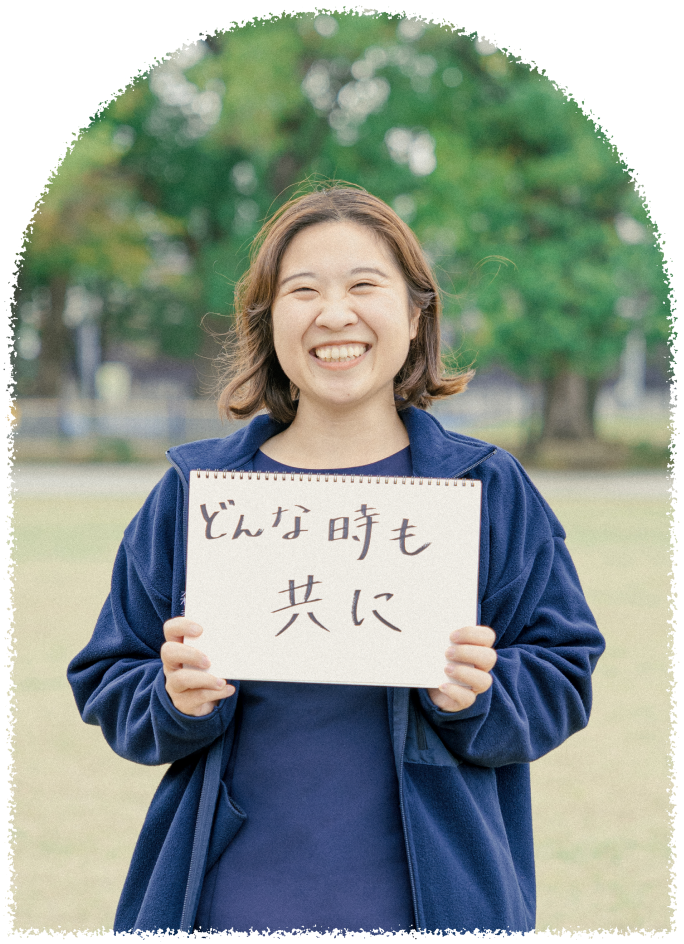 どんな時も
共に